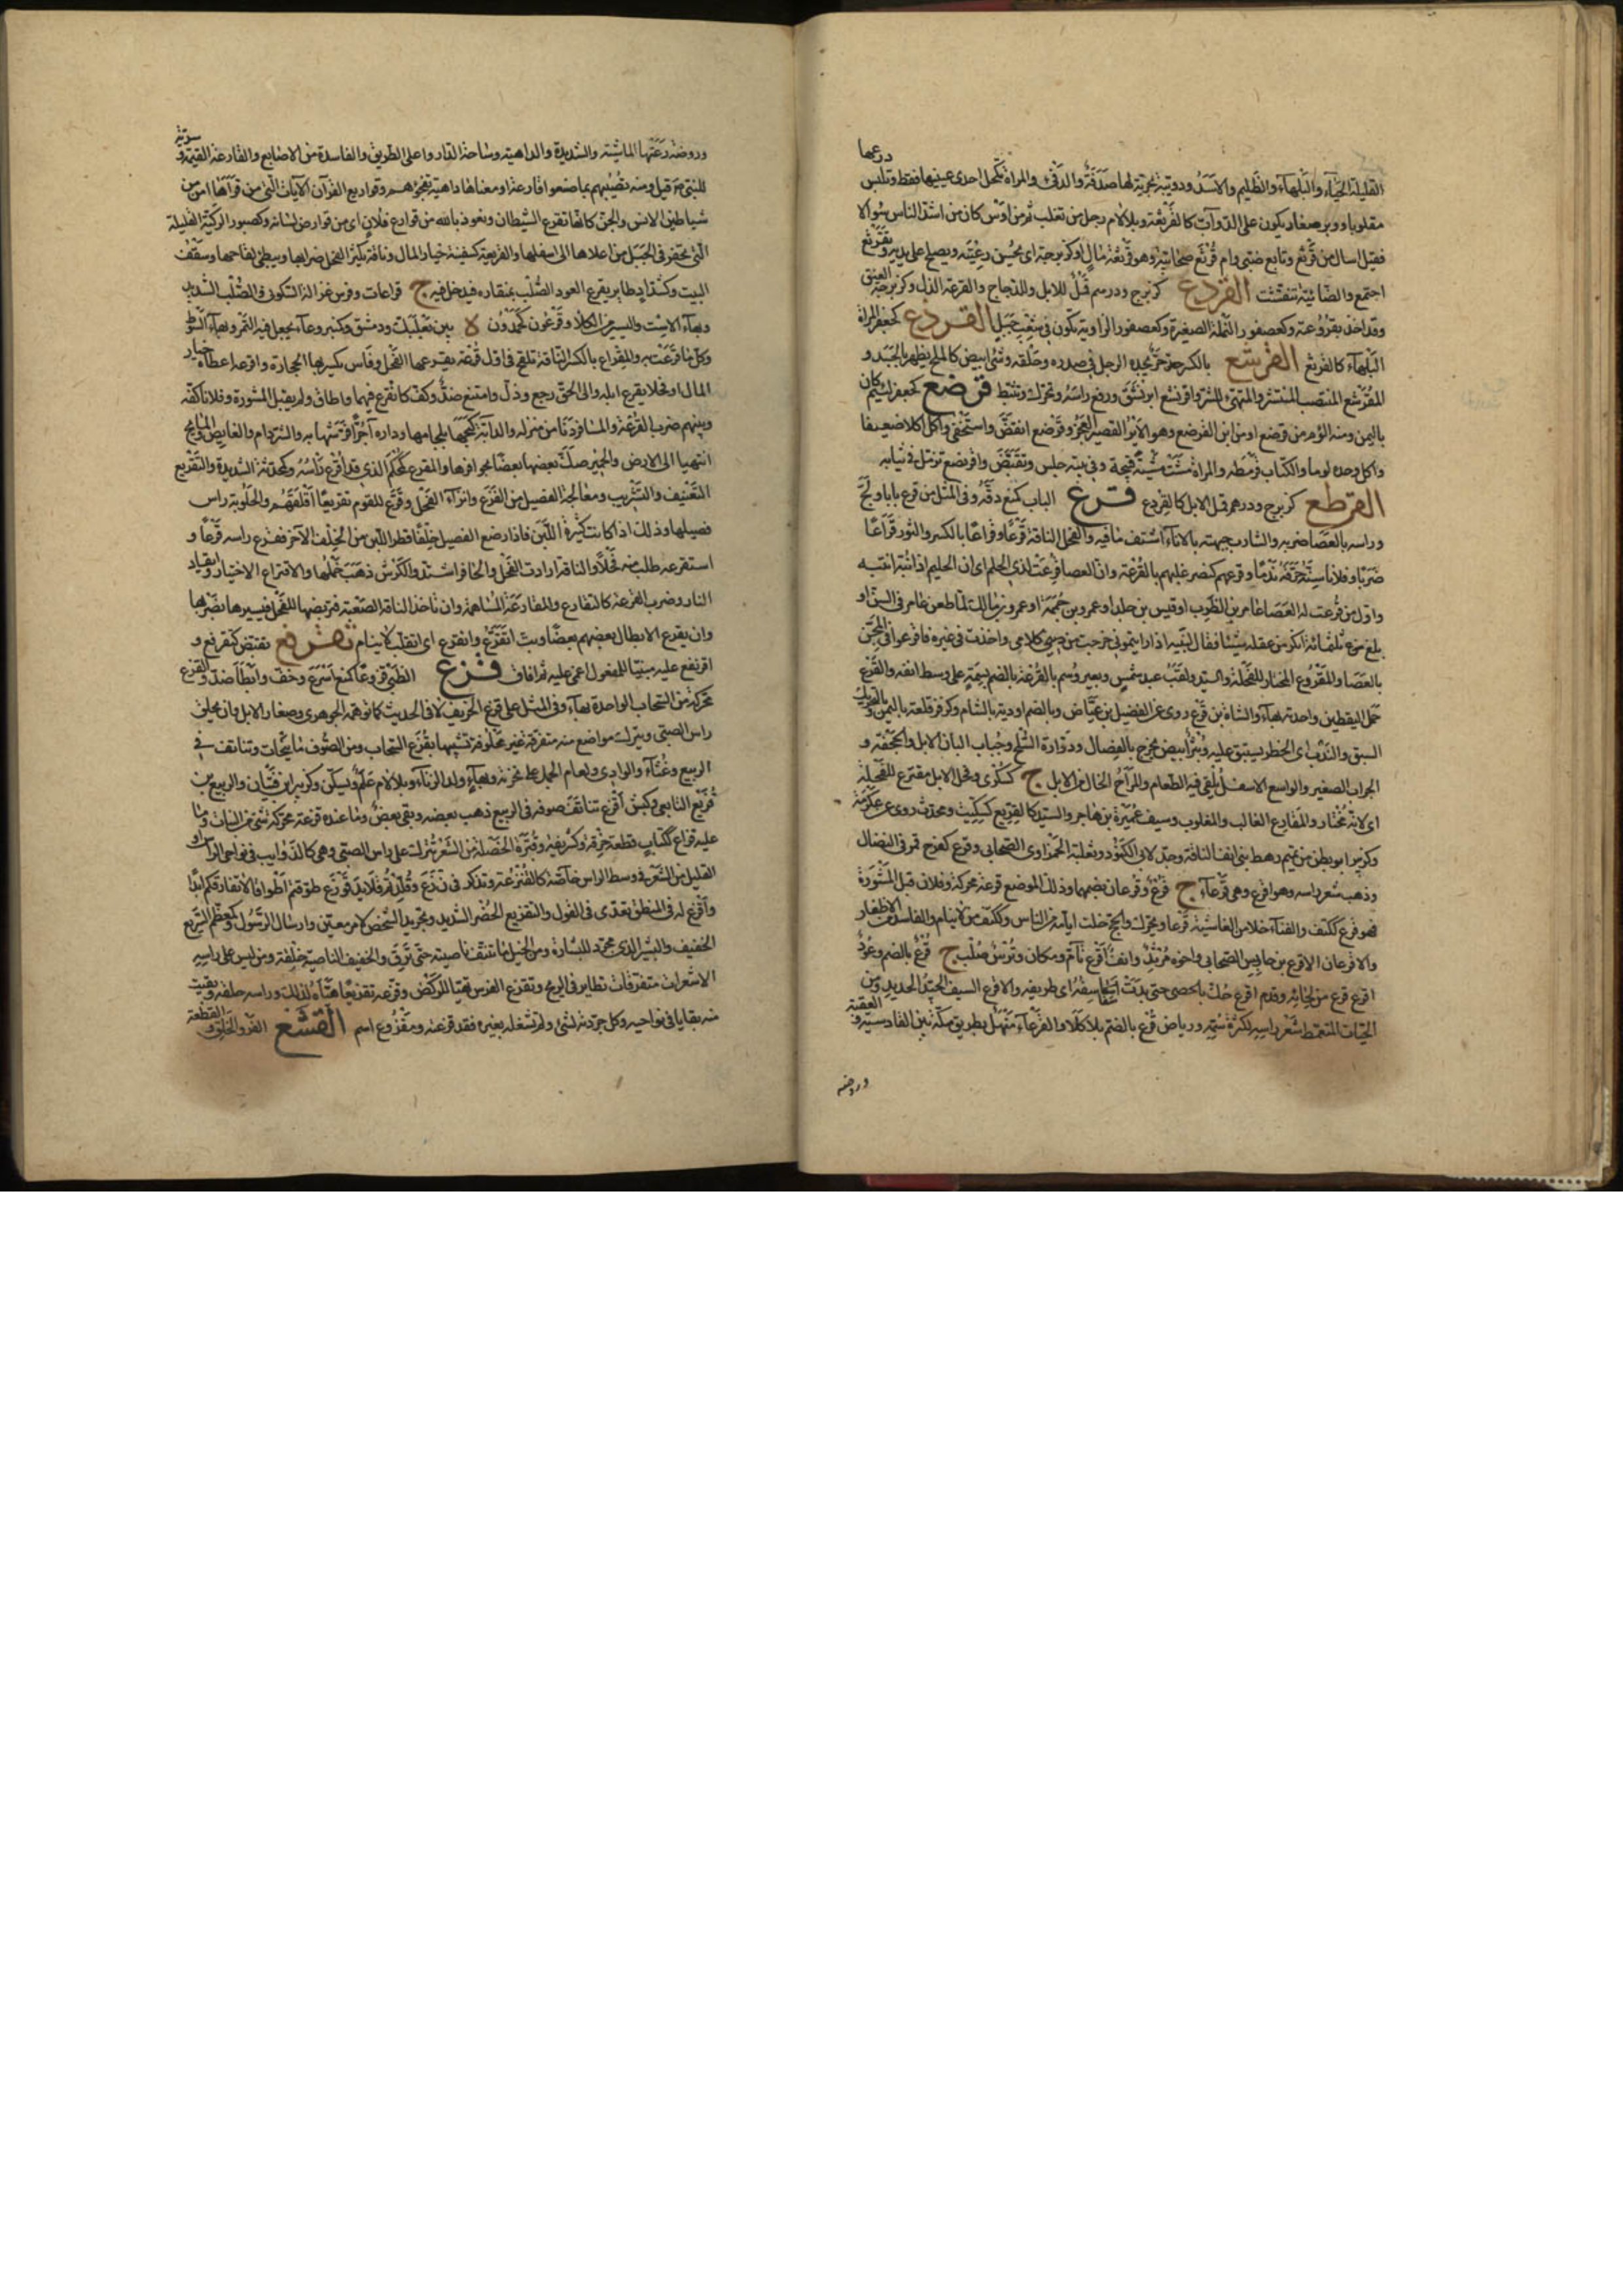 القليلة الحياء والبلهاء والظليم والاسد ودويبة بحرية لها صدفة والدفئ والمراة تكحل احدى عينيها فقط وتلبس درعها
مقلوبا ووبر صغار يكون على الدواب كالقريثعة وبلا لام رجل من تغلب ثم من اوس كان من اشد الناس سؤالا
فقيل اسال من قرثع وتابع ضبى وام قرثع صحابية وهو قرثعة مال وكزبرجة اى يحسن رعيته ويصلح على يديه وتقرثع
اجتمع والضائنة تنفشت القردع كزبرج ودرهم قمل للابل والدجاج والقرعة الذل وكزبرجة العنق
وقد اخذ بقردوعته وكعصفور النملة الصغيرة وكعصفور الزاوية تكون فى شعب جبل القردع كجعفر المراة
البلهاء كالقرثع القرشع بالكسر حر يجده الرجل فى صدره وحلقه وشئ ابيض كالملح يظهر بالجسد و
المقرشع المنتصب المنتشر والمتهئ للشر واقرنشع ابرنشق ورفع راسه وتحرك ونشط قرصع كجعفر لئيم كان
باليمن ومنه الؤم من قرصع او من ابن القرصع وهو الاير القصير العجر وقرصع انقبض واستخفى واكل اكلا ضعيفا
واكل وحده لوما والكتاب قرمطه والمراة مشت مشية قبيحة وفى بيته جلس وتقبض واقرنصع تزمل فى ثيابه
القرطع كزبرج ودرهم قمل الابل كالقردع قرع الباب كمنع دقه وفى المثل من قرع بابا ولج
وراسه بالعصا ضربه والشارب جبهته بالاناء اشتف ما فيه والفحل الناقة قرعا وقراعا بالكسر والثور قراعا
ضربا وفلان سنه حرقه ندما وقرعهم كنصر غلبهم بالقرعة وان العصا قرعت لذى الحلم اى ان الحليم اذا نبه انتبه
واول من قرعت له العصا عامر بن الظرب او قيس بن خالد او عمرو بن حممة او عمرو بن مالك لما طعن عامر فى السن او
بلغ ثلثمائة انكر من عقله شيئا فقال لبنيه اذا رايتمونى خرجت من كلامى واخذت فى غيره فاقرعوا لى المجن
بالعصا والمقروع المختار للفحلة والسيد ولقب عبد شمس وبعير وسم بالقرعة بالضم لسمة على وسط انفه والقرع
حمل اليقطين واحدته بهاء والشاة بن قرع روى عن الفضيل بن عياض وبالضم اودية بالشام وكزفر قلعة باليمن وبالتحريك
السبق والندب اى الخطر يستبق عليه وبثر ابيض يخرج بالفصال ودوارة السلح وجباب البان الابل والحجفة و
الجراب الصغير والواسع الاسفل يلقى فيه الطعام والمراح الخال من الابل ج كسكرى وفحل الابل مقترع للفحلة
اى لانه مختار والمقارع الغالب والمغلوب وسيف عميرة بن هاجر والسيد كالقريع كسكيت ومحدث روى عن عكرمة
وكزبير ابو بطن من تميم رهط بنى انف الناقة وجد لابى الكنود ثعلبة الحمراوى الصحابى وقرع كفرح قمر فى النضال
وذهب شعر راسه وهو اقرع وهى قرعاء ج قرع وقرعان بضمهما وذلك الموضع قرعة محركة وفلان قبل المشورة
فهو قرع ككتف والفناء خلا من الغاشية قرعا ويحرك والحج خلت ايامه من الناس وككتف من لا ينام والفاسد من الاظفار
والاقرعان الاقرع بن حابس الصحابى واخوه مرثد والف اقرع تام ومكان وترس صلب ج قرع بالضم وعود
اقرع قرع من لحائه وقدم اقرع حك بالحصى حتى بدت اسفاسقه اى طرايقه والاقرع السيف الجيد الحديد ومن
الحيات المتمعط شعر راسه لكثرة سمه ورياض قرع بالضم بلا كلا والقرعاء منهل بطريق مكة بين القادسية و العقبة
وروضة
وروضة رعتها الماشية والشديدة والداهية وساحة الدار واعلى الطريق والفاسدة من الاصابع والقارعة القيمة و سرية
للنبى قيل ومنه تصيبهم بما صنعوا قارعة او معناها داهية تفجؤهم وقوارع القرآن الآيات التى من قراها امن من
شياطين الانس والجن كانها تقرع الشيطان ونعوذ بالله من قوارع فلان اى من قوارص لسانه وكصبور الركية القليلة
التى تحفر فى الجبل من اعلاها الى اسفلها والقريعة كسفينة خيار المال وناقة يكثر الفحل ضرابها ويبطئ لقاحها وسقف
البيت وكشداد طاير يقرع العود الصلب بمنقاره فيدخل فيه ج قراعات وفرس غزالة السكونى والصلب الشديد
وبهاء الاست واليسير من الكلا وقرعون كحمدون ة بين بعلبك ودمشق وكنبر وعاء يجعل فيه التمر وبهاء السوط
وكل ما قرعت به والمقراع بالكسر الناقة تلقح فى اول قرعة يقرعها الفحل وفاس يكسر بها الحجارة واقرعه اعطاه خيار
المال او فحلا يقرع ابله والى الحق رجع وذل وامتنع ضد وكف كانقرع فيهما واطاق ولم يقبل المشورة وفلانا كفه
وبينهم ضرب القرعة والمسافر دنا من منزله والدابة كبحها بلجامها وداره آجرا فرشها به والشر دام والغايص والمايح
انتهيا الى الارض والحمير صك بعضها بعضا بحوافرها والمقرع كمحكم الذى قد اقرع راسه وكمحدثة الشديدة والتقريع
التعنيف والتثريب ومعالجة الفصيل من القرع وانزاء الفحل وقرع للقوم تقريعا اقلقهم والحلوبة راس
فصيلها وذلك اذا كانت كثيرة اللبن فاذا رضع الفصيل خلفا قطر اللبن من الخلف الآخر فقرع راسه قرعا و
استقرعه طلب منه فحلا والناقة ارادت الفحل والحافر اشتد والكرش ذهب خملها والاقتراع الاختيار وايقاد
النار وضرب القرعة كالتقارع والمقارعة المساهمة وان تاخذ الناقة الصعبة فتربضها للفحل فيبسرها بضربها
وان يقرع الابطال بعضهم بعضا وبت اتقرع وانقرع اى اتقلب لا انام تقرفع تقبض كتقرفع و
اقرنفع عليه مبنيا للمفعول اغمى عليه ثم افاق قزع الظبى قزوعا كمنع اسرع وخف وابطا ضد والقزع
محركة من السحاب الواحدة بهاء وفى المثل على قزع الخريف لا فى الحديث كما توهمه الجوهرى وصغار الابل وان يحلق
راس الصبى ويترك مواضع منه متفرقة غير محلوقة تشبيها بقزع السحاب ومن الصوف ما يتحات ويتناتف فى
الربيع وغثاء الوادى ولغام الجمل على نخرته وبهاء ولد الزناء وبلا لام علم ويسكن وكزبير ابن فتيان والربيع بن
قزيع التابعى وكبش اقزع تناتف صوفه فى الربيع ذهب بعضه وبقى بعض وما عنده قزعة محركة شئ من الثياب وما
عليه قزاع ككتاب قطعة خرقة وكشريفة وقبرة الخصلة من الشعر تترك على راس الصبى وهى كالذوايب فى نواحى الراس او
القليل من الشعر فى وسط الراس خاصة كالقنزعة وتذكر فى ن ز ع وقلدتم قلايد قوزع طوقتم اطواقا لا تفارقكم ابدا
واقزع له فى المنطق تعدى فى القول والتقزيع الحضر الشديد وتجريد الشخص لامر معين وارسال الرسول وكمعظم السريع
الخفيف والبشير الذى جرد للبشارة ومن الخيل ما تنتف ناصيته حتى ترق والخفيف الناصية خلقة ومن ليس على راسه
الا شعرات متفرقات تطاير فى الريح وتقزع الفرس تهيا للركض وقزعه تقزيعا هياه لذلك وراسه حلقه وبقيت
منه بقايا فى نواحيه وكل من جردته لشئ ولم تشغله بغيره فقد قزعته ومقزوع اسم القشع الفرو الخلق و القطعة